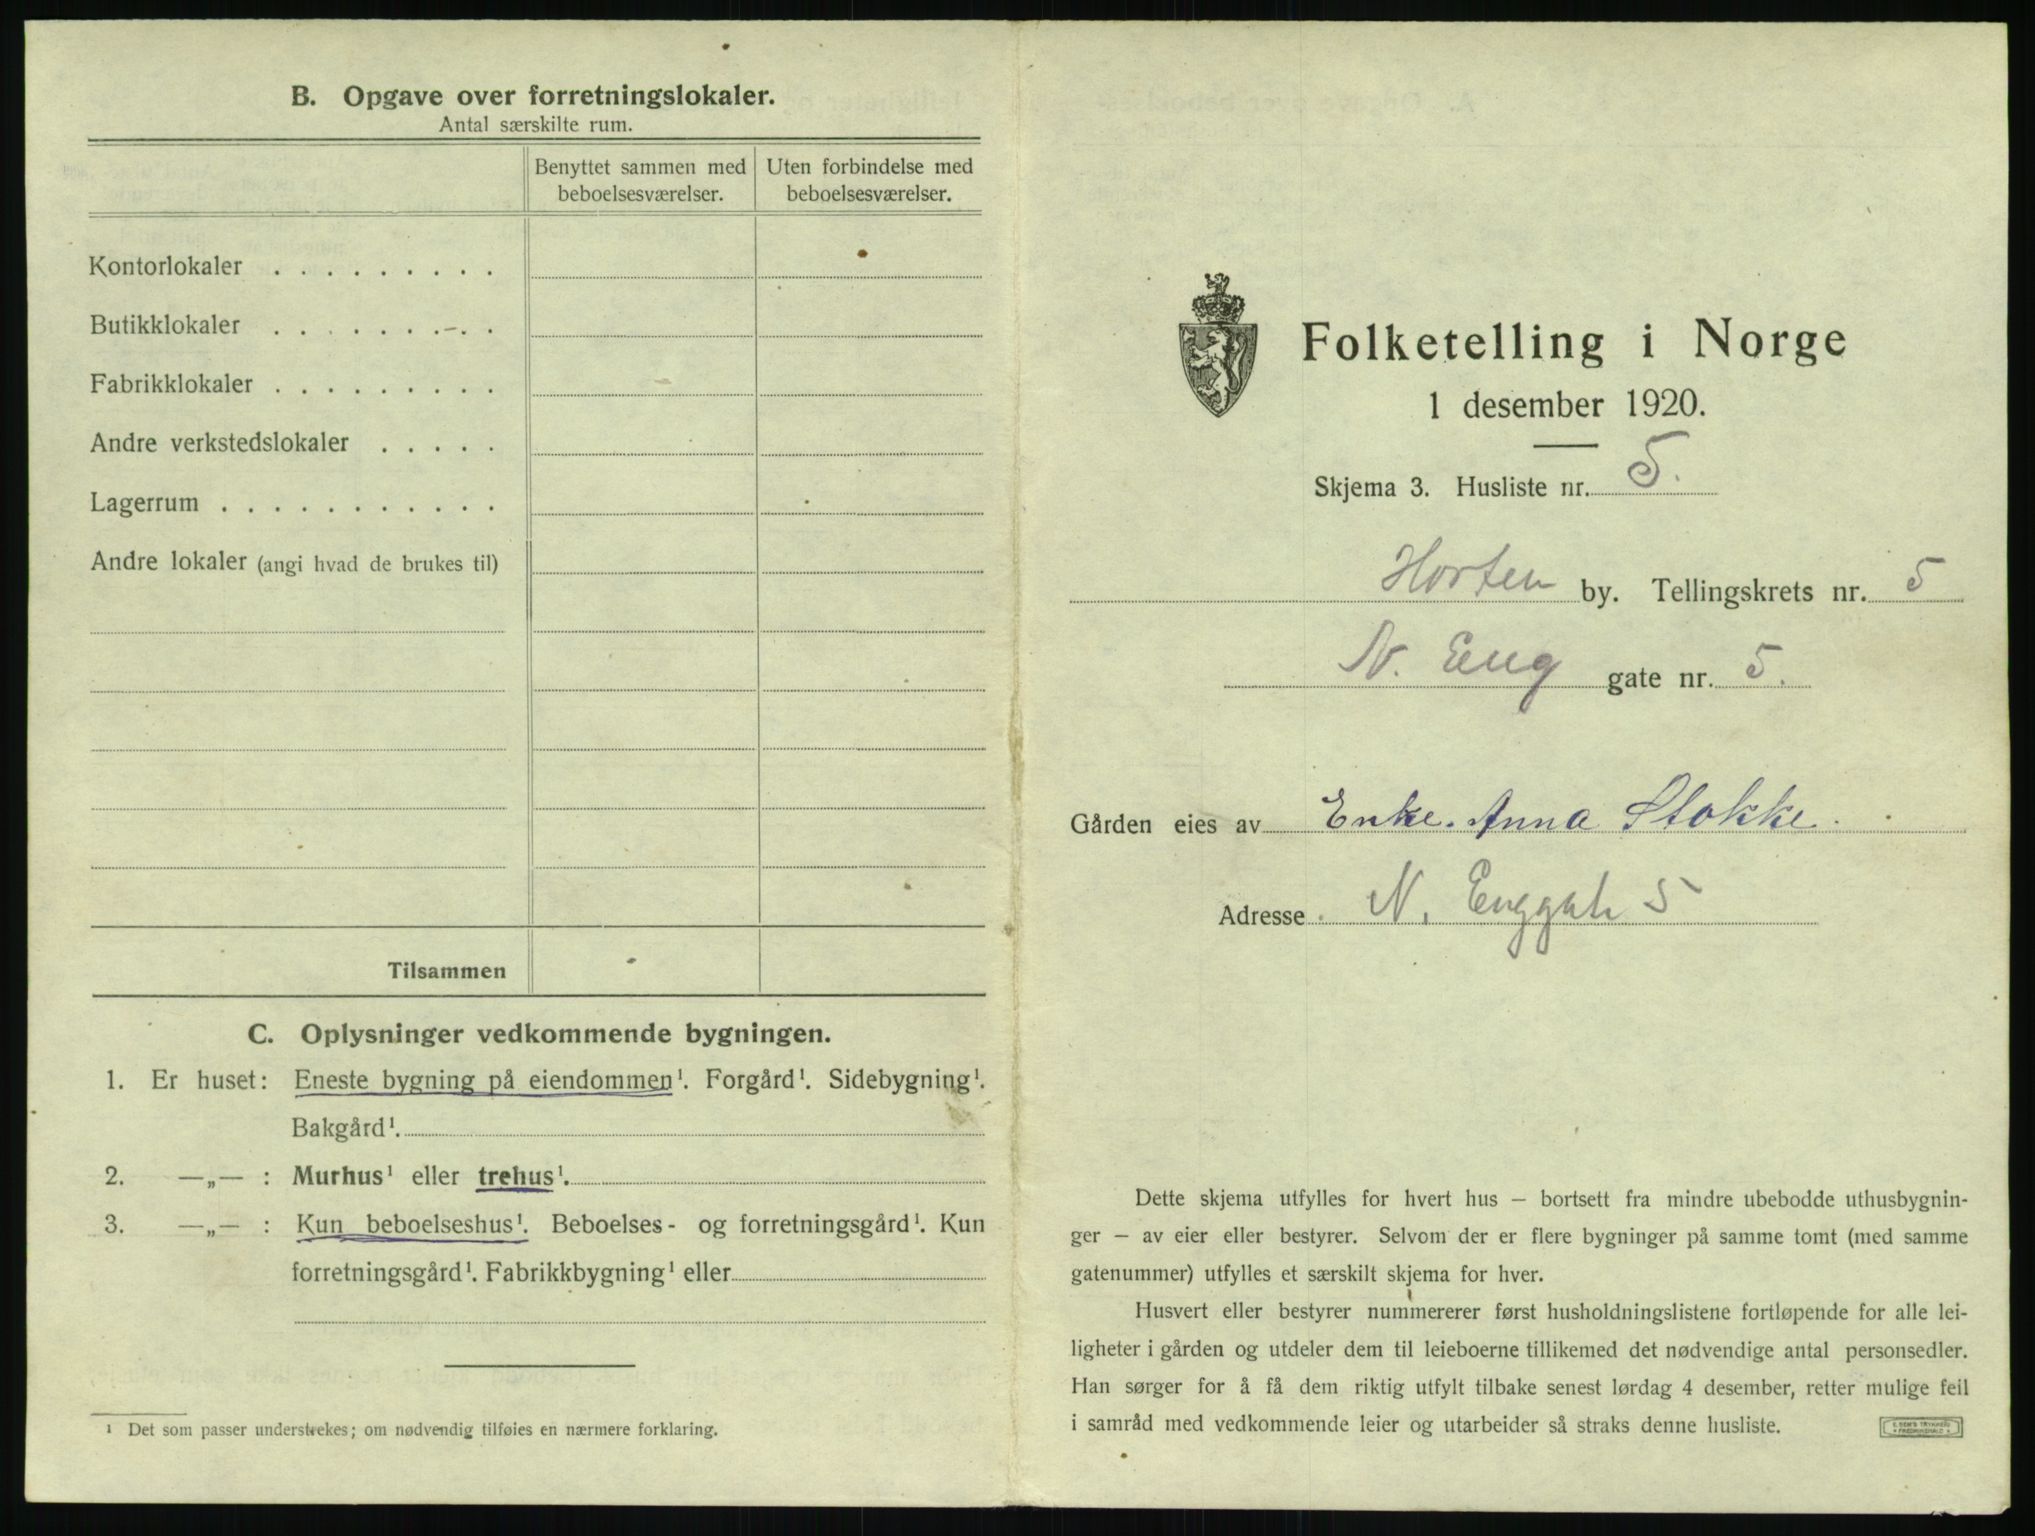 B. Opgave over forretningslokaler.
Antal særskilte rum.
Benyttet sammen med beboelsesværelser.
Uten forbindelse med beboelsesværelser.
Kontorlokaler . . . . . . . . .
Butikklokaler . . . . . . . . .
Fabrikklokaler . . . . . . . . .
Andre verkstedslokaler . . . . .
Lagerrum . . . . . . . . . . .
Andre lokaler (angi hvad de brukes til)
Tilsammen
C. Oplysninger vedkommende bygningen.
1. Er huset: Eneste bygning på eiendommen¹. Forgård¹. Sidebygning¹.
Bakgård¹.
2. —„— : Murhus¹ eller trehus¹.
3. —„— : Kun beboelseshus¹. Beboelses- og forretningsgård¹. Kun
forretningsgård¹. Fabrikkbygning¹ eller
¹ Det som passer understrekes; om nødvendig tilføies en nærmere forklaring.
Folketelling i Norge
1 desember 1920.
Skjema 3. Husliste nr. 5.
Horten by. Tellingskrets nr. 5
N. Eng gate nr. 5.
Gården eies av Enke. Anna Stokke.
Adresse N. Enggate 5
Dette skjema utfylles for hvert hus – bortsett fra mindre ubebodde uthusbygnin-
ger – av eier eller bestyrer. Selvom der er flere bygninger på samme tomt (med samme
gatenummer) utfylles et særskilt skjema for hver.
Husvert eller bestyrer nummererer først husholdningslistene fortløpende for alle lei-
ligheter i gården og utdeler dem til leieboerne tillikemed det nødvendige antal personsedler.
Han sørger for å få dem riktig utfylt tilbake senest lørdag 4 desember, retter mulige feil
i samråd med vedkommende leier og utarbeider så straks denne husliste.